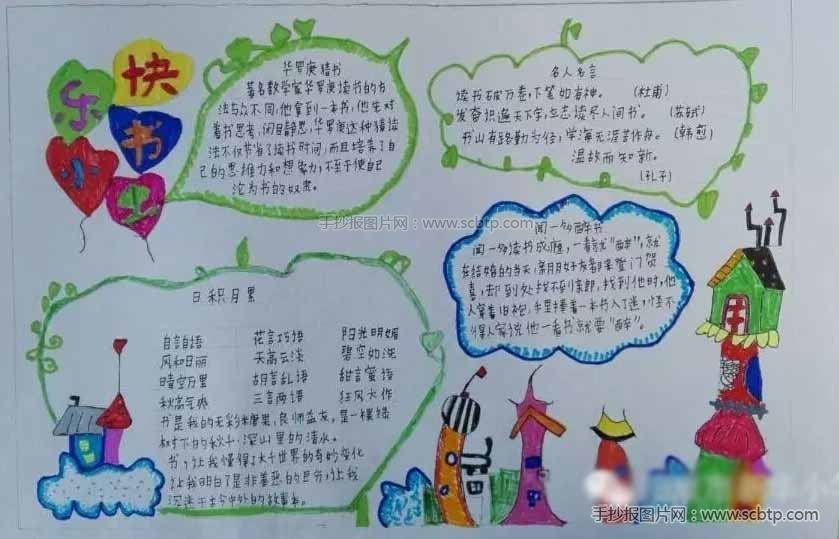 快
乐
书
小
士
华罗庚猜书
著名数学家华罗庚读书的方
法与众不同,他拿到一本书,他先对
着书思考,闭目静思,华罗庚这种猜读
法不仅节省了读书时间,而且培养了自
己的思维力和想象力,不至于使自己
沦为书的奴隶。
名人名言
读书破万卷,下笔如有神。 (杜甫)
发奋识遍天下字,立志读尽人间书。 (苏轼)
书山有路勤为径,学海无涯苦作舟。 (韩愈)
温故而知新。
(孔子)
手抄报图片网:www.scbtp.com
闻一多醉书
闻一多读书成瘾,一看就"醉",就
在结婚的当天,亲朋好友都来登门贺
喜,却到处找不到新郎,找到他时,他
人穿着旧袍,手里捧着一本书入了迷,怪不
得人家说他一看书就要"醉"。
日积月累
自言自语 花言巧语 阳光明媚
风和日丽 天高云淡 碧空如洗
晴空万里 胡言乱语 甜言蜜语
秋高气爽 三言两语 狂风大作
书是我的无彩糖果,良师益友,是一棵绿
树下的秋千,深山里的清水。
书,让我懂得了大千世界的奇妙变化
让我明白了是非善恶的区分,让我
沉迷于古今中外的故事书。
手抄报图片网:www.scbtp.com